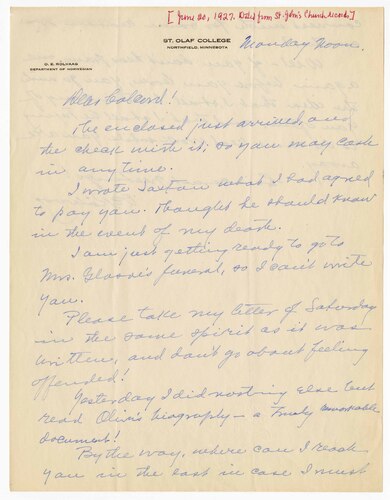 [June 20, 1927. Dated from St. John's Church records]
ST. OLAF COLLEGE
NORTHFIELD, MINNESOTA
Monday Noon.
O. E. ROLVAAG
DEPARTMENT OF NORWEGIAN
Dear Colcord!
The enclosed just arrived, and
the check with it; so you may cash
in any time.
I wrote Saxton what I had agreed
to pay you. Thought he should know
in the event of my death.
I am just getting ready to go to
Mrs. funeral, so I can't write
you.
Please take my letter of Saturday
in the same spirit as it was
written, and don't go about feeling
offended!
Yesterday I did nothing else but
read Olin's biography — a truly remarkable
document!
By the way, where can I reach
you in the east in case I must